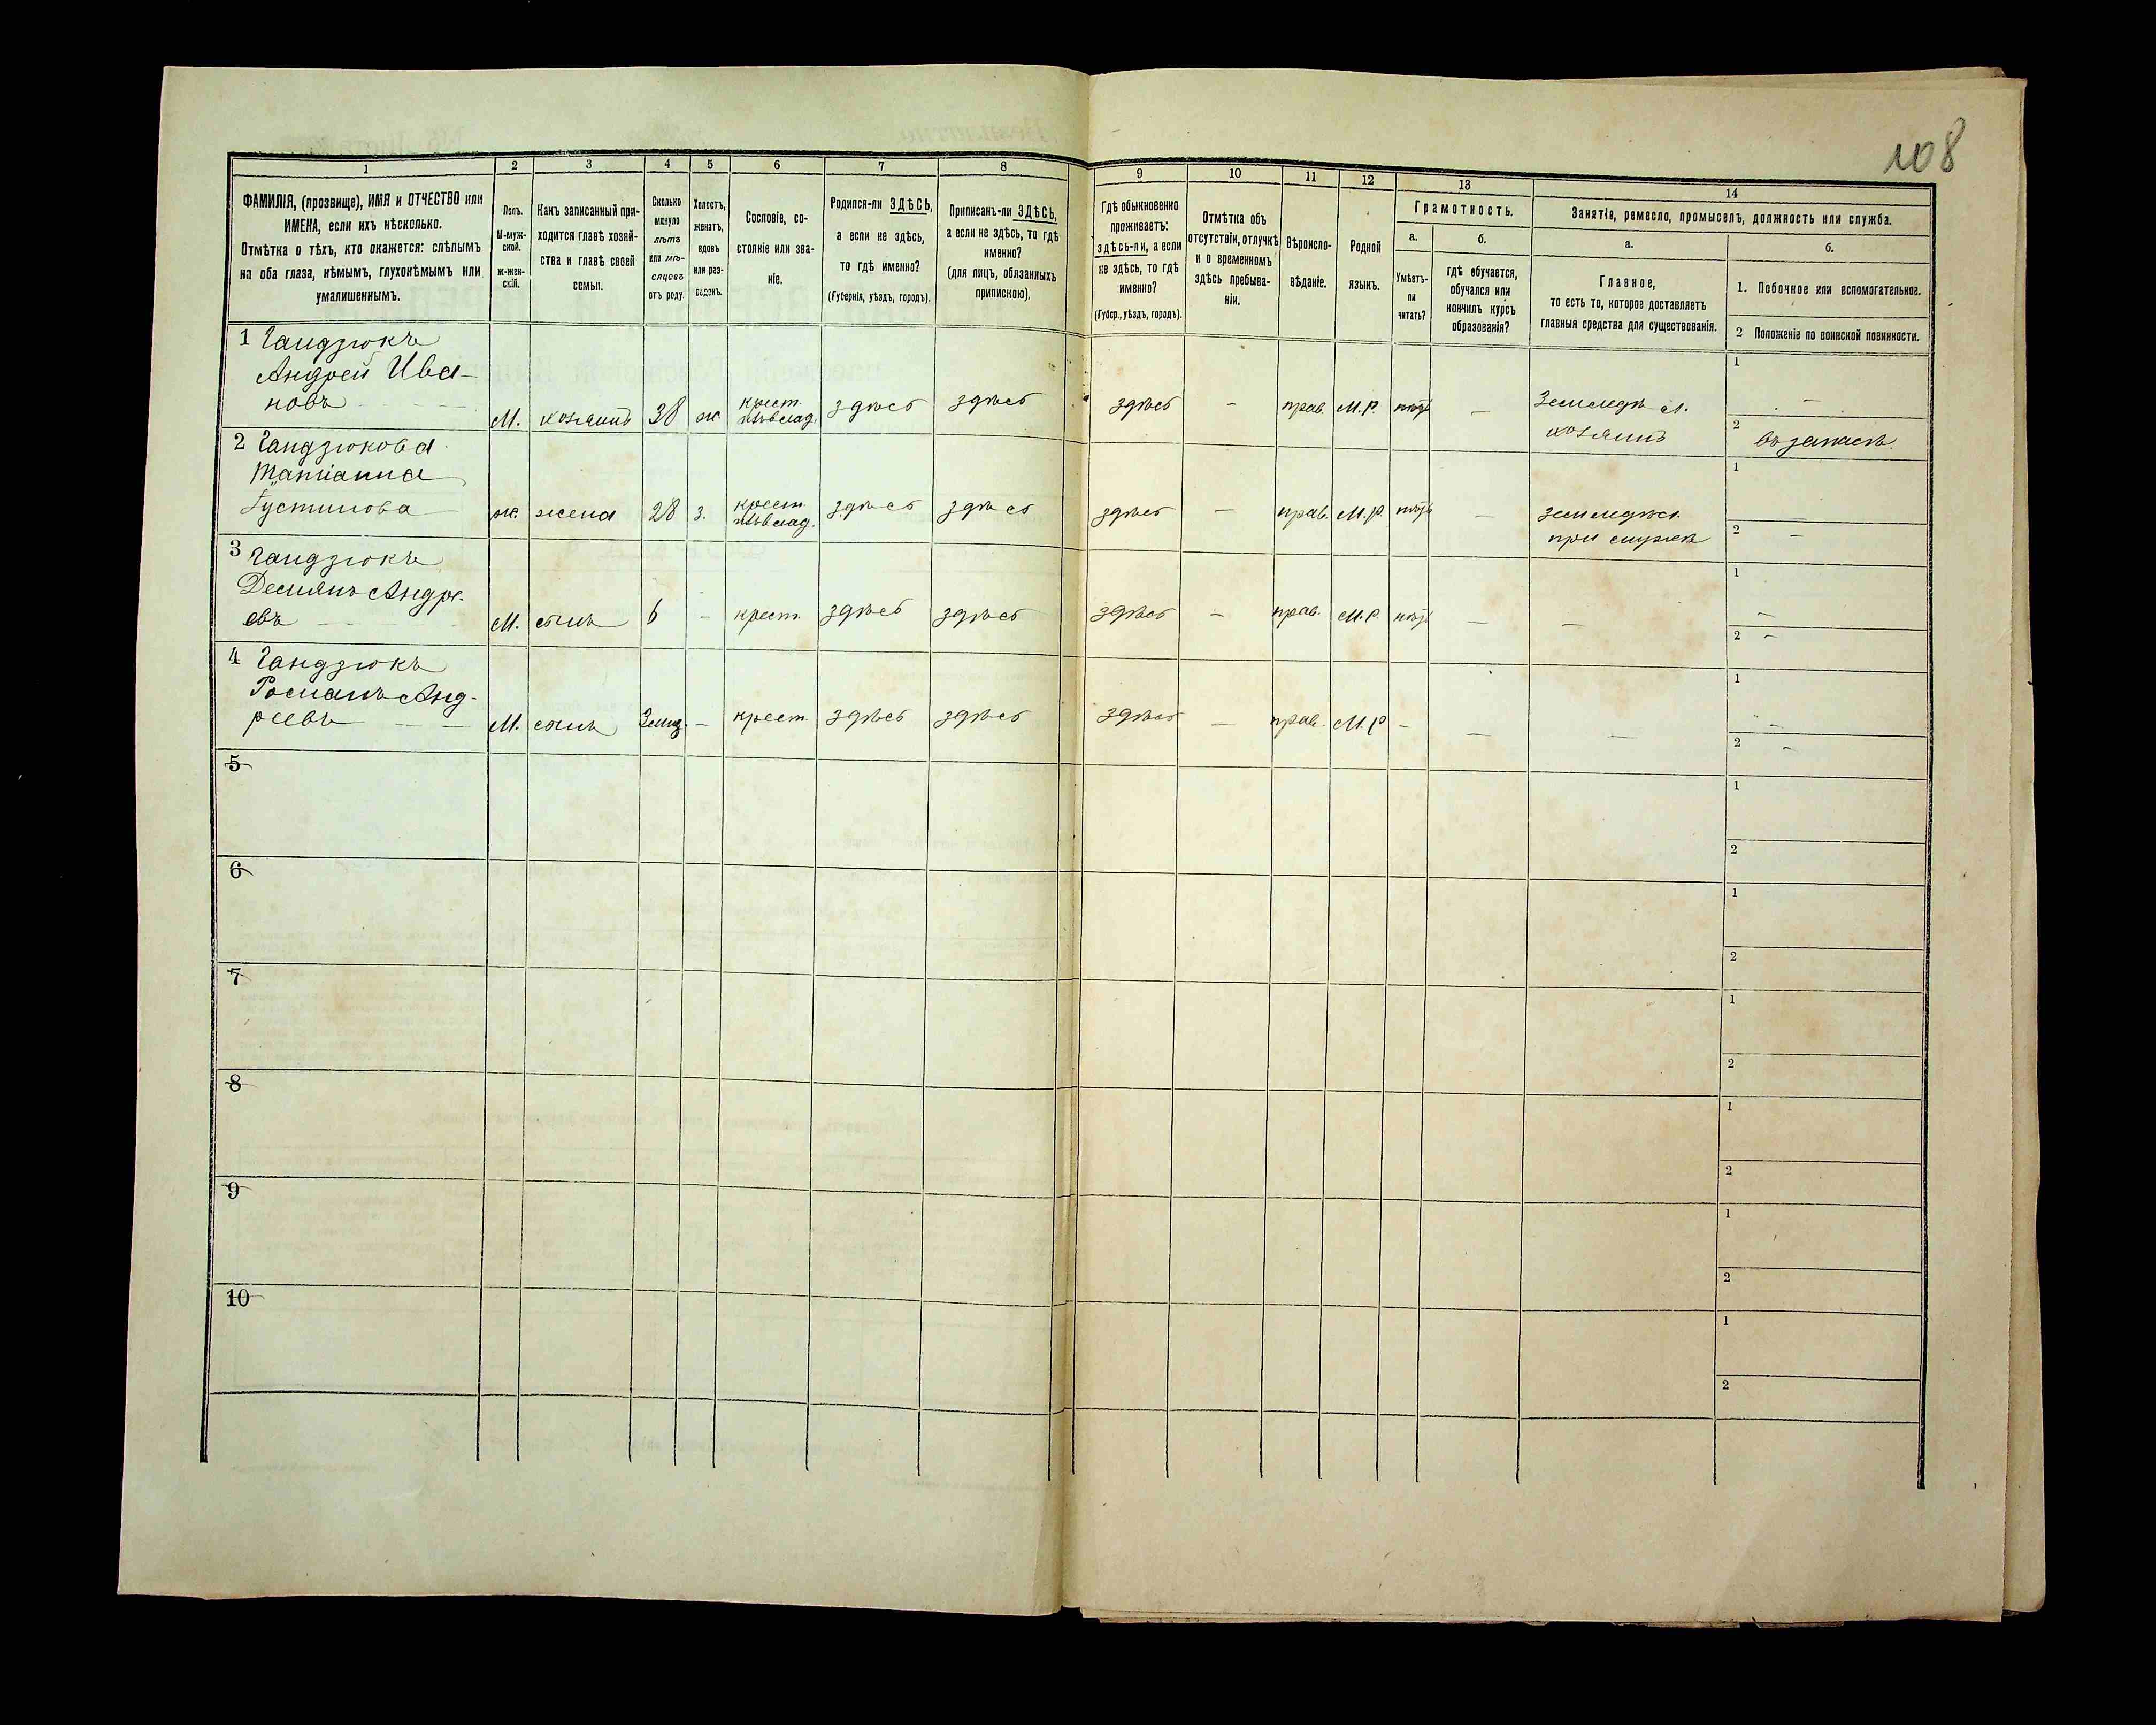 108
1
2
3
4
5
6
7
8
9
10
11
12
13
14
ФАМИЛІЯ, (прозвище), ИМЯ и ОТЧЕСТВО или
ИМЕНА, если ихъ нѣсколько.
Отмѣтка о тѣхъ, кто окажется: слѣпымъ
на оба глаза, нѣмымъ, глухонѣмымъ или
умалишеннымъ.
Полъ.
М-муж-
ской.
ж-жен-
скій.
Какъ записанный при-
ходится главѣ хозяй-
ства и главѣ своей
семьи.
Сколько
минуло
лѣтъ
или мѣ-
сяцевъ
отъ роду.
Холостъ,
женатъ,
вдовъ
или раз-
веденъ.
Сословіе, со-
стояніе или зва-
ніе.
Родился-ли ЗДѢСЬ,
а если не здѣсь,
то гдѣ именно?
(Губернія, уѣздъ, городъ).
Приписанъ-ли ЗДѢСЬ,
а если не здѣсь, то гдѣ
именно?
(для лицъ, обязанныхъ
припискою).
Гдѣ обыкновенно
проживаетъ:
здѣсь-ли, а если
не здѣсь, то гдѣ
именно?
(Губер., уѣздъ, городъ).
Отмѣтка объ
отсутствіи, отлучкѣ
и о временномъ
здѣсь пребыва-
ніи.
Вѣроиспо-
вѣданіе.
Родной
языкъ.
Грамотность.
а.
Умѣетъ-
ли
читать?
б.
гдѣ обучается,
обучался или
кончилъ курсъ
образованія?
Занятіе, ремесло, промыселъ, должность или служба.
а.
Главное,
то есть то, которое доставляетъ
главныя средства для существованія.
б.
1. Побочное или вспомогательное.
2 Положеніе по воинской повинности.
1 Гандзюкъ
Андрей Ива-
новъ
М.
хозяинъ
38
ж.
крест.
здѣсь
здѣсь
здѣсь
-
прав.
М.Р.
-
Земледѣл.
хозяинъ
1
-
2 въ запасѣ
2 Гандзюкова
Татіанна
Густинова
ж.
жена
28
з.
крест.
здѣсь
здѣсь
здѣсь
-
прав.
М.р.
-
земледѣл.
при мужѣ
1
2 -
3 Гандзюкъ
Демянъ Андре-
евъ
М.
сынъ
6
-
крест.
здѣсь
здѣсь
здѣсь
-
прав.
М.Р.
-
-
1
-
2 -
4 Гандзюкъ
Романъ Анд-
реевъ
М.
сынъ
-
крест.
здѣсь
здѣсь
здѣсь
-
прав.
М.Р
-
-
-
1
-
2 -
5
1
2
6
1
2
7
1
2
8
1
2
9
1
2
10
1
2